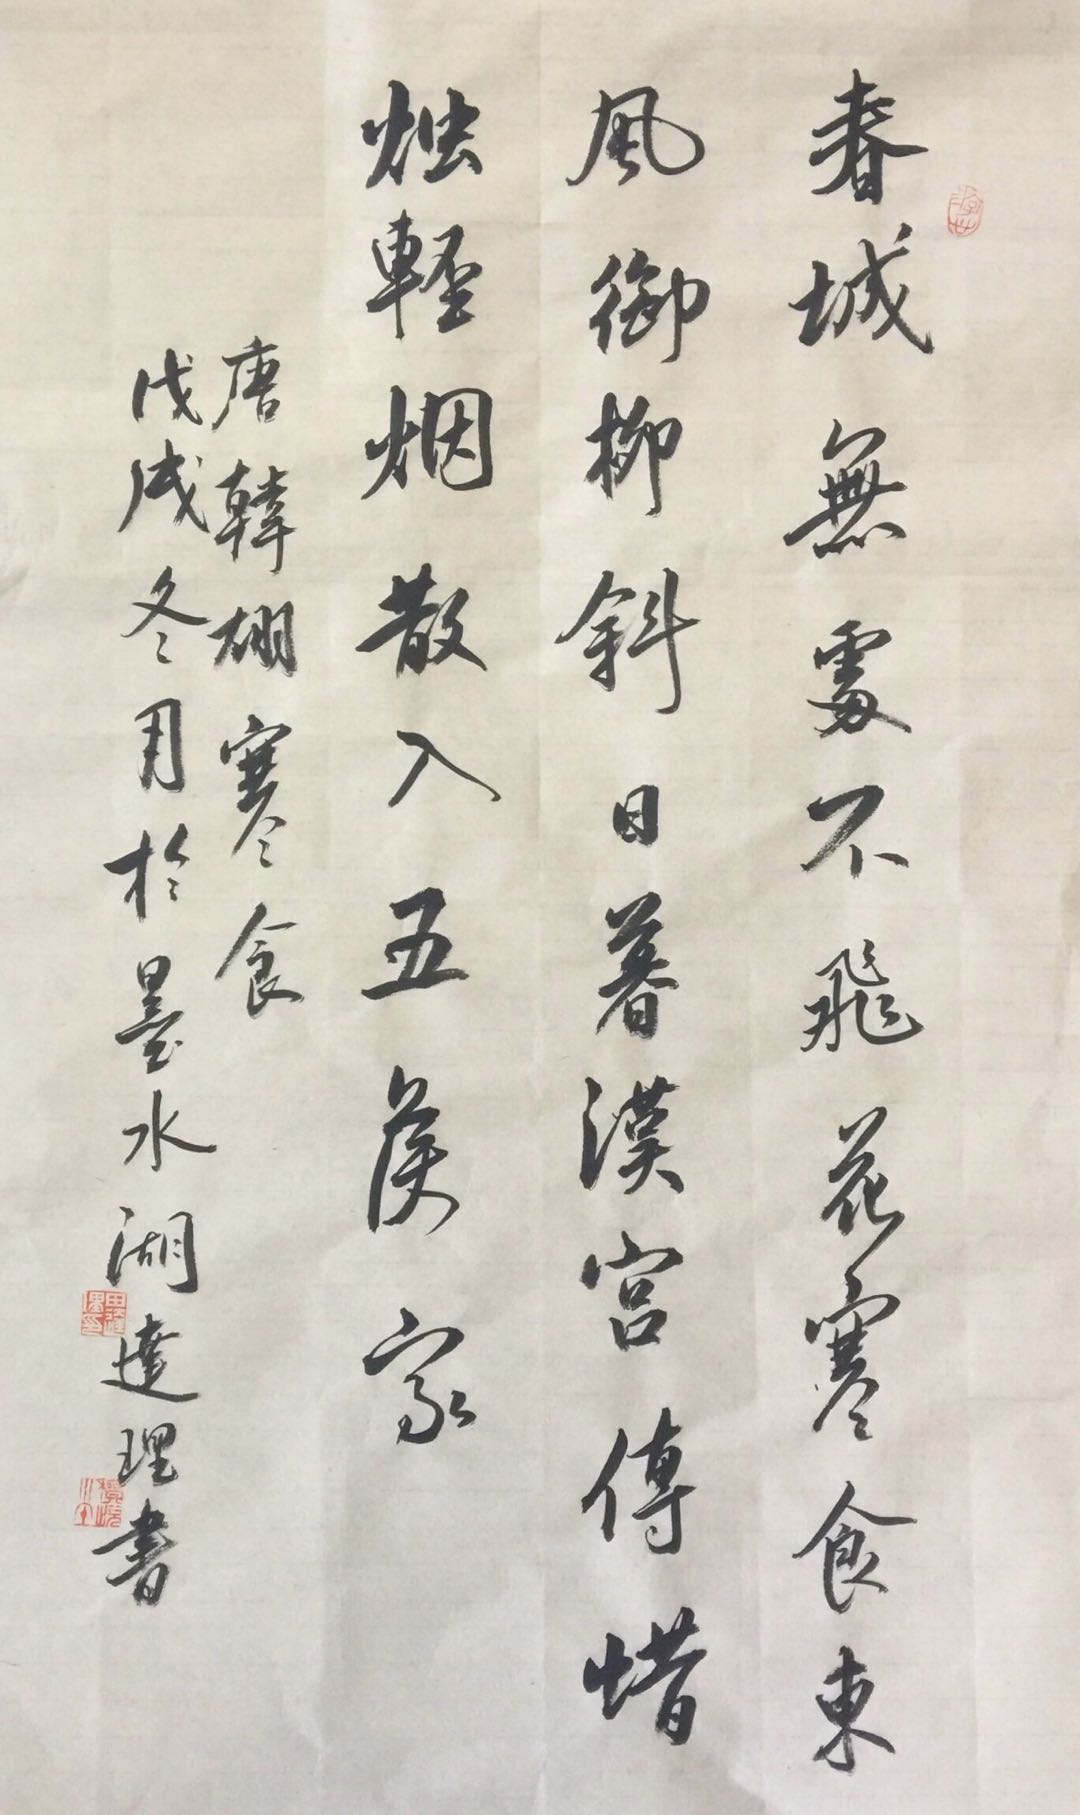 春城無處不飛花寒食東
風御柳斜日暮漢宮傳蜡
烛輕烟散入五侯家
唐韓翃寒食
戊戌冬月於墨水湖達理書